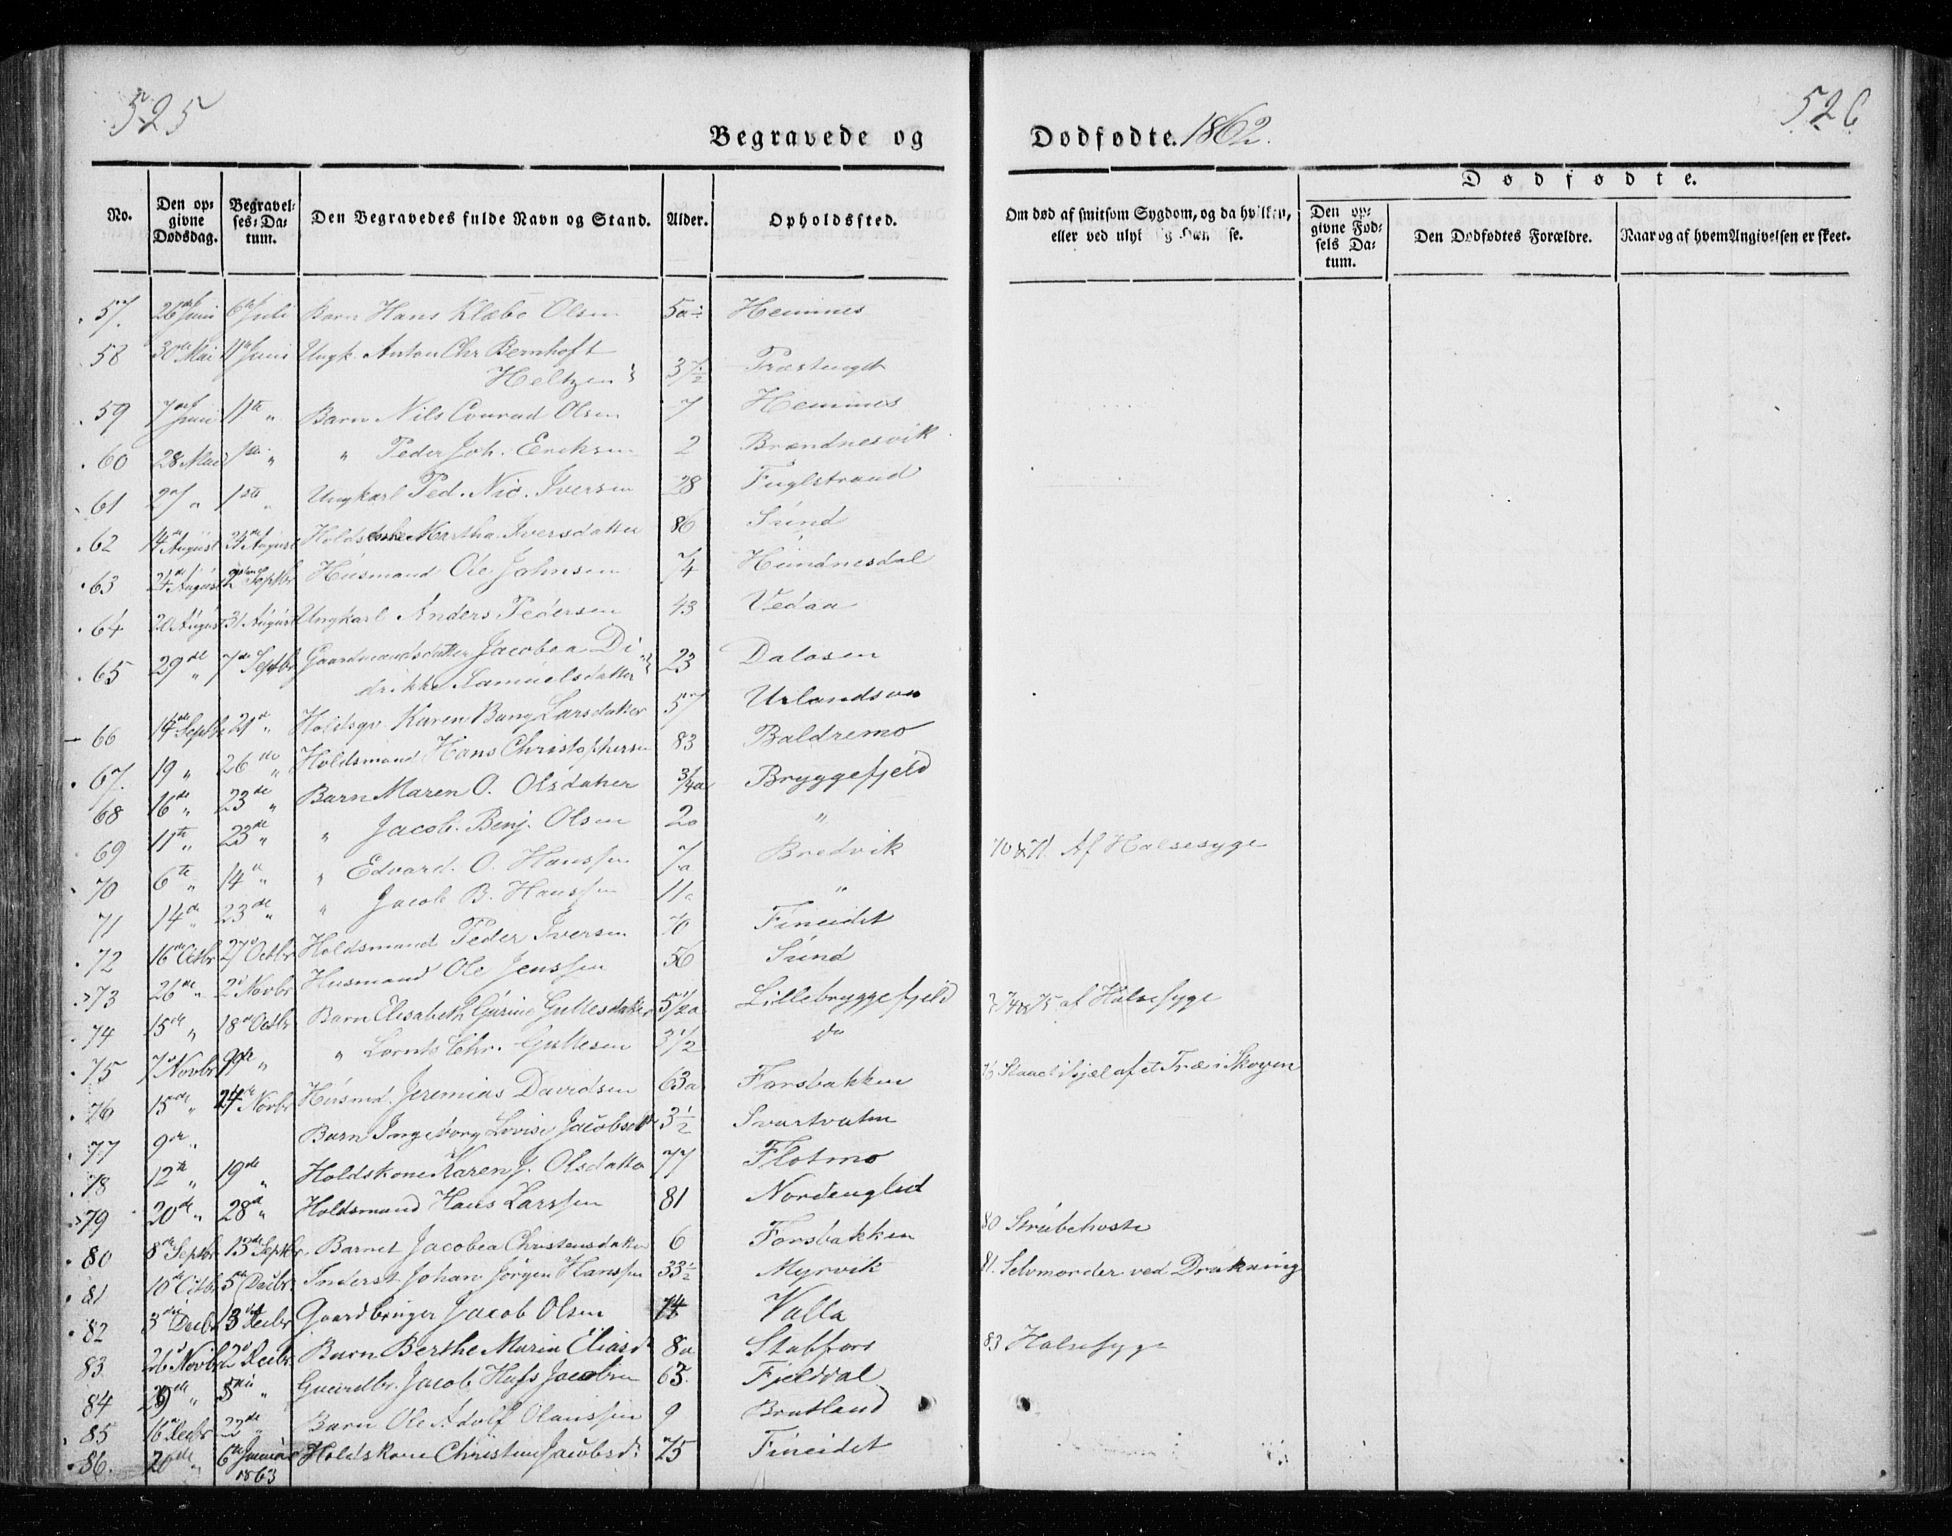 525
526
Begravede og Dødfødte. 1862.
Dødfødte.
No. Den opgivne Dødsdag. Begravelses-Datum. Den Begravedes fulde Navn og Stand. Alder. Opholdssted. Om død af smitsom Sygdom, og da hvilken, eller ved Den opgivne Fødsels Datum. Den Dødfødtes Forældre. Naar og af hvem Angivelsen er skeet.
57. 26de Juni 6te Juli Barn Hans Klæbo Olsen 5a Hemnes
58 30de Mai 11te Juni Ungk. Anton Chr Bernhoft
Heltzen 37 1/2 Præstengt
59 7de Juni 11te " Barn Nils Conrad Olsen 7 Hemnes
60 28 Mai 1ste " " Peder Joh. Eriksen 2 Brændnesvik
61 27 " 1ste " Ungkarl Ped. Nic. Iversen 28 Fuglstrand
62 14de August 24de August Holdskone Martha Iversdatter 86 Sund
63 24de August 2 Septbr Husmand Ole Johnsen 74 Hundnesdal
64 20 August 31 August Ungkarl Anders Pedersen 43 Vedaa
65 29de " 7de Septbr Gaardmandsdatter Jacobea Di
drikke Samuelsdatter 23 Dalosen
66 14de Septb 21d " Holdsgv. Karen Bang Larsdatter 57 Urlandsvn
67. 19 " 26de " Holdsmand Hans Christophersen 83 Baldremo
68 16de " 23de " Barn Maren O. Olsdatter 3/4a Bryggefjeld
69 11te " 23de " " Jacob. Benj. Olsen 2a "
70 6te " 14d " " Edvard. O. Hanssen 7a Bredvik 70 & 71. Af Halsesyge
71 14de " 23de " " Jacob B. Hanssen 11a "
72 16de Octbr 27d Octbr Holdsmand Peder Iversen 70 Fineidet
73 26de " 2d Novbr Husmand Ole Jenssen 56 Sund
74 15de " 18d Octbr Barn Elisabeth Gurine Gullesdatter 5 1/2a Lillebryggefjeld 74 & 75 af Halsesyge
75 7d Novbr 9de " " Lornts Chr. Gullesen 3 1/2 do
76 15de " 24de Novbr Husmd. Jeremias Davidsen 63a Forsbakken Slaaet ihjæl af et Træ i Skogen
77 9de " Barn Ingeborg Lovise Jacobsdtr 3 1/2 Svartvatn
78 12te " 19de " Holdskone Karen J. Olsdatter 77 Flotmo
79 20de " 28de " Holdsmand Hans Larssen 81
80 8de Septbr 13de Septbr Barnet Jacobea Christensdatter 6 Forsbakken 80 Strubehoste
81 10de Octbr 5te Decbr. Inderst Johan Jørgen Hanssen 33 1/2 Myrvik 81. Selvmorder ved Drukning
82 3die Decbr 13de Decbr Gaardbruger Jacob Olsen 74 Valla
83 26d Novbr 2d Decbr. Barn Berthe Maria Eliasd. 8a Stabfors 83 Halsesyge
84 29de " 5te " Gaardbr. Jacob Jacobsen 65. Fjelddal
85 16d Decbr 22de " Barn Ole Adolf Olaussen 9 Bratland
86. 20de " 6te Januar
1863 Holdskone Christine Jacobsd. 75 Fineidet